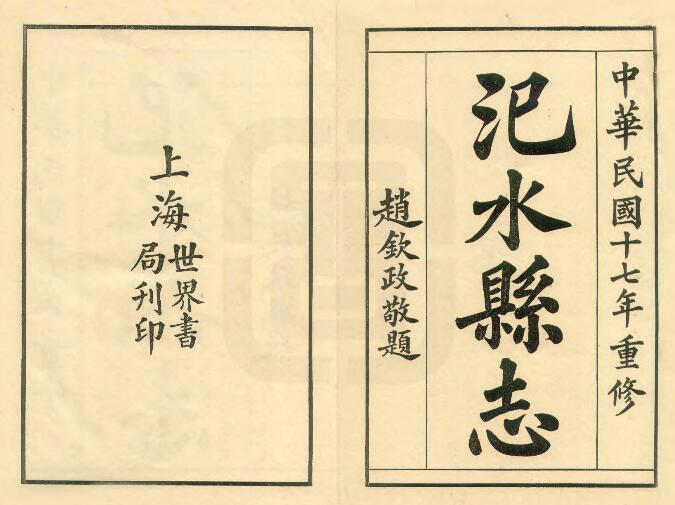 中華民國十七年重修
汜水縣志
趙欽政敬題
上海世界書
局刊印